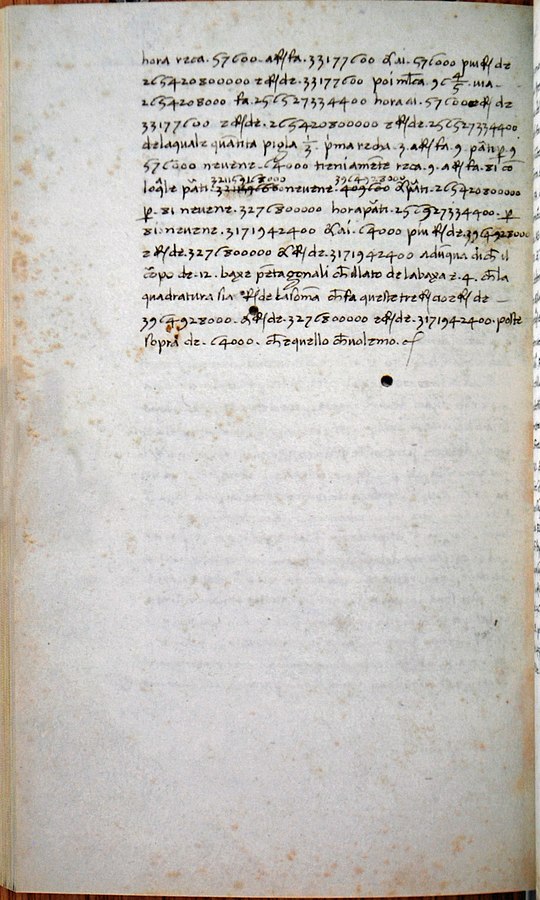 hora reca. 57600. a R/ fa. 33177600 & ai. 576000 piu R/ de
265420800000 e R/ de. 33177600 poi m̄ca. 96 4/5. uia
2654208000 fa. 256527334400 hora ai. 57600 e R/ de
33177600 e R/ de. 265420800000 e R/ de. 256527334400
dela quale quantita pigla 1/3. p̄ma recha. 3. a R/ fa. 9. p̄ti p̱ 9
576000 neuene. 64000 tieni amēte reca. 9. a R/ fa. 81 cō
lo q̄le p̄ti. neuene. & p̄ti. 265420800000
p̱. 81 neuene. 327680000 hora p̄ti. 256927334400. p̱
81. neuene. 3171942400 & ai. 64000 piu R/ de. 3964928000
e R/ de. 327680000 & R/ de. 3171942400 adūqua dico ch̄ il
corpo de. 12. baxe pētagonali ch̄ il lato de la baxa e. 4. ch̄ la
quadratura sia R/ de la somā ch̄ fa queste tre R/ cioe R/ de
3964928000. & R/ de. 3276800000 e R/ de. 3171942400. poste
sopra de. 64000. ch̄ e quello ch̄ uolemo.